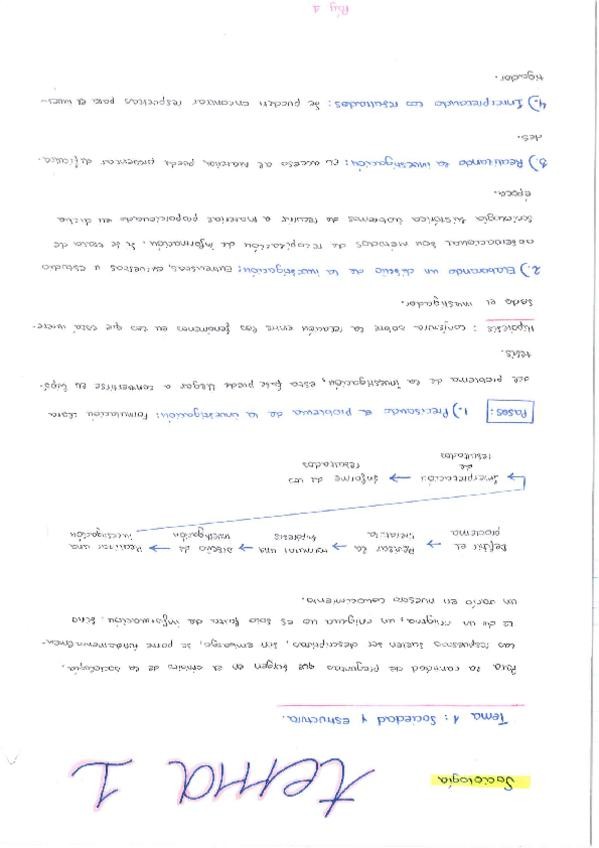 Sociología
tema 1
Tema 1: Sociedad y estructura.
Para la cantidad de preguntas que surgen en el ámbito de la sociología,
las respuestas suelen ser descriptivas, sin embargo, se parte
de un enigma, un enigma no es solo falta de información. Sino
un vacío en nuestro conocimiento.
Definir el problema → Revisar la literatura → Formular una hipótesis → diseño de investigación → Realizar una investigación
→ Interpretación de resultados → Informe de los resultados
Pasos: 1.) Precisando el problema de la investigación: formulación clara
del problema de la investigación, esta fase puede llegar a convertirse en hipó-
tesis.
Hipótesis: conjetura sobre la relación entre los fenómenos en los que está intere-
sado el investigador.
2.) Elaborando un diseño de la investigación: Entrevistas, encuestas u estudio
son métodos de recopilación de información. Si se trata de
sociología histórica debemos de recurrir a material proporcionado en dicha
época.
3.) Realizando la investigación: El acceso al material puede presentar dificulta-
des.
4.) Interpretando los resultados: Se pueden encontrar respuestas para el inves-
tigador.
Pág 1